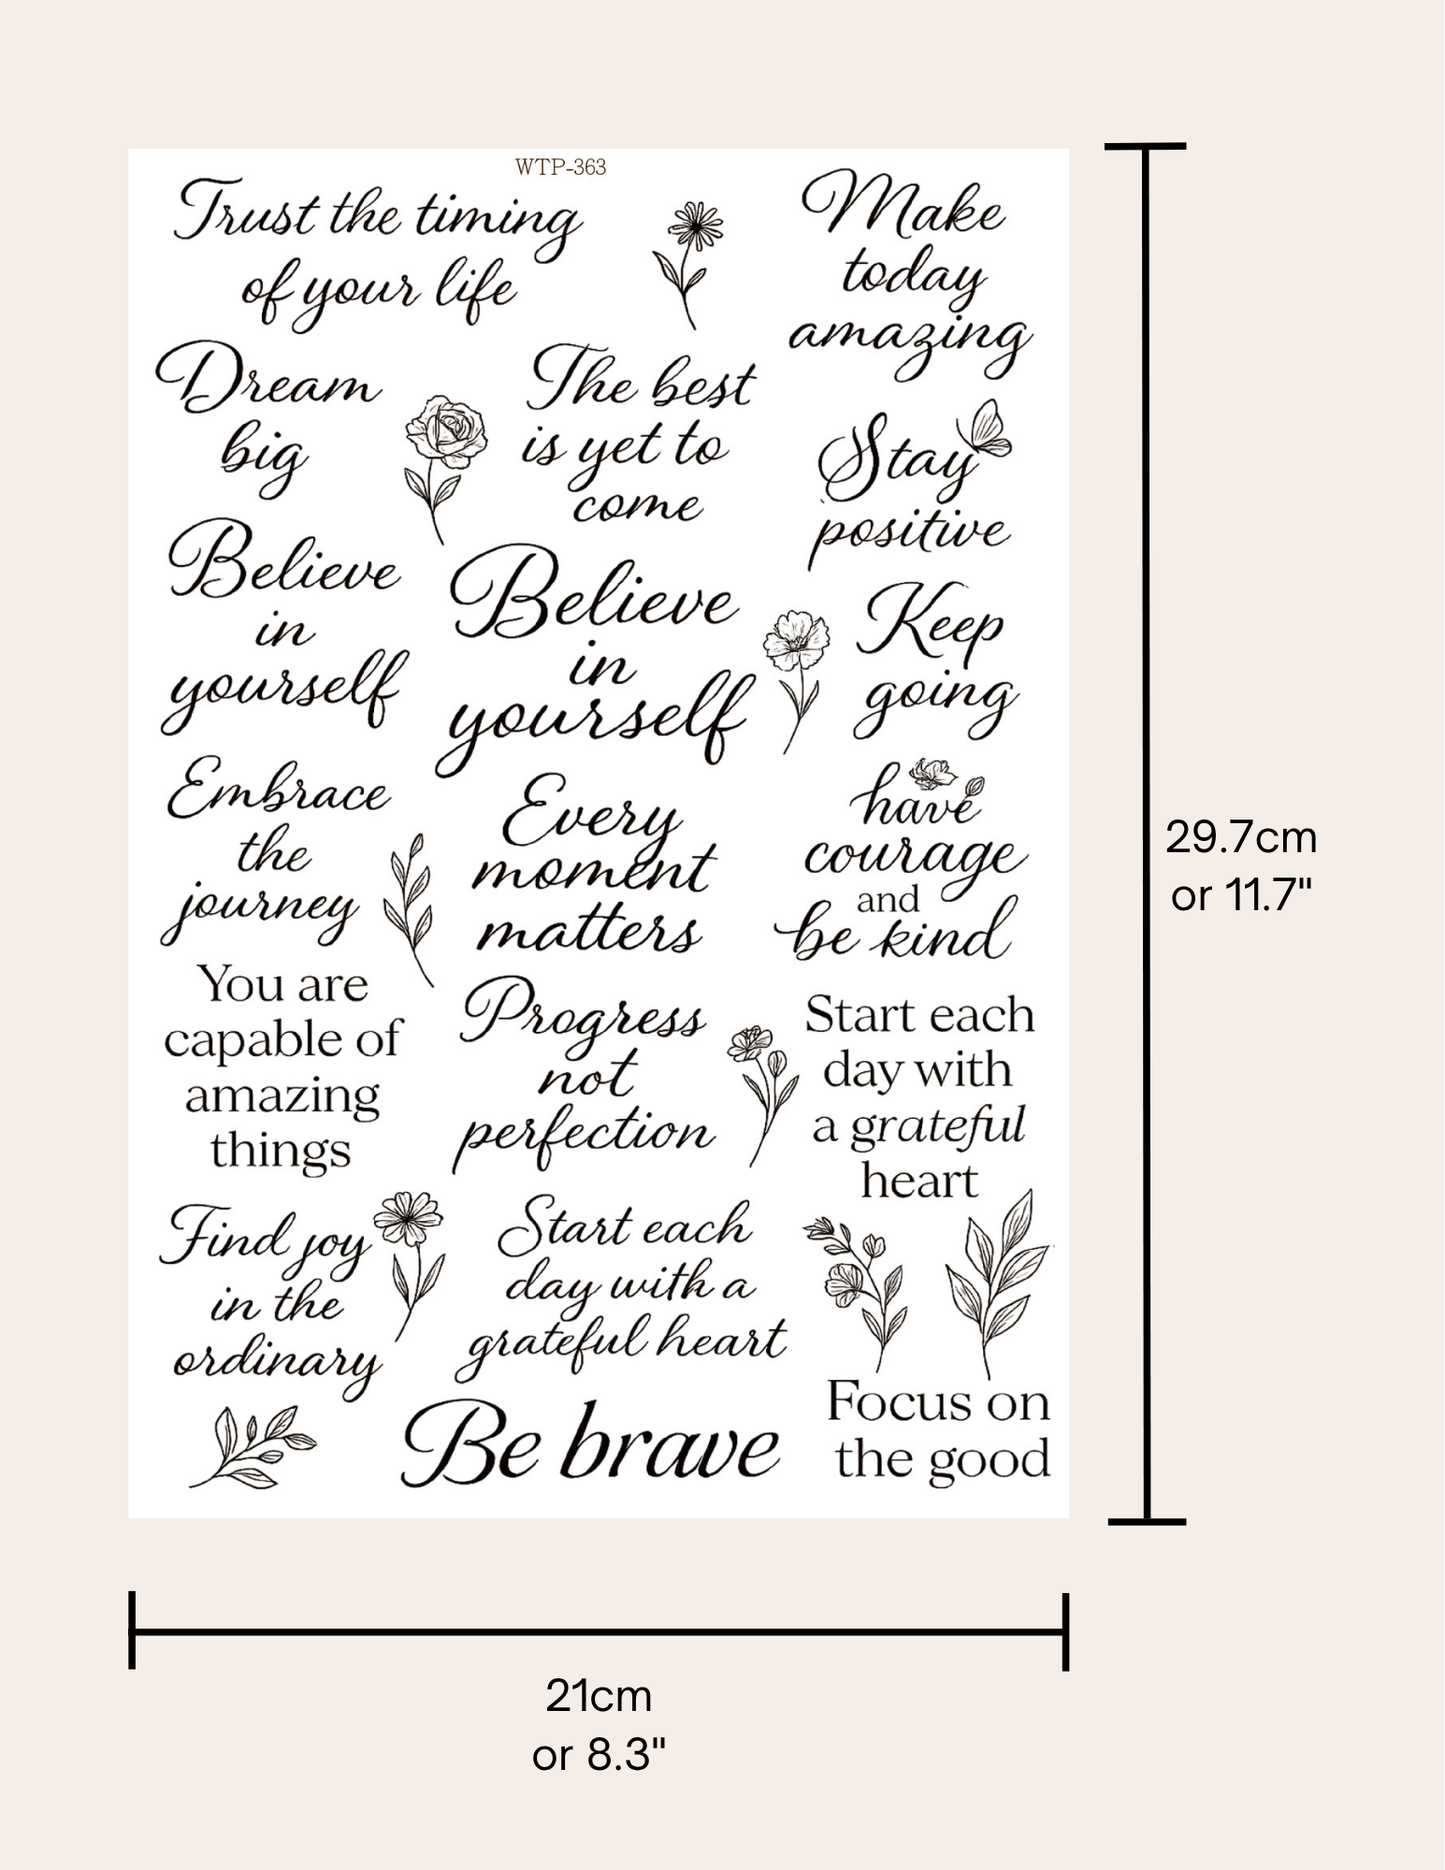 WTP-363
Trust the timing
of your life
Make
today
amazing
Dream
big
The best
is yet to
come
Stay
positive
Believe
in
yourself
Believe
in
yourself
Keep
going
Embrace
the
journey
Every
moment
matters
have
courage
and
be kind
You are
capable of
amazing
things
Progress
not
perfection
Start each
day with
a grateful
heart
Find joy
in the
ordinary
Start each
day with a
grateful heart
Be brave
Focus on
the good
29.7cm
or 11.7"
21cm
or 8.3"